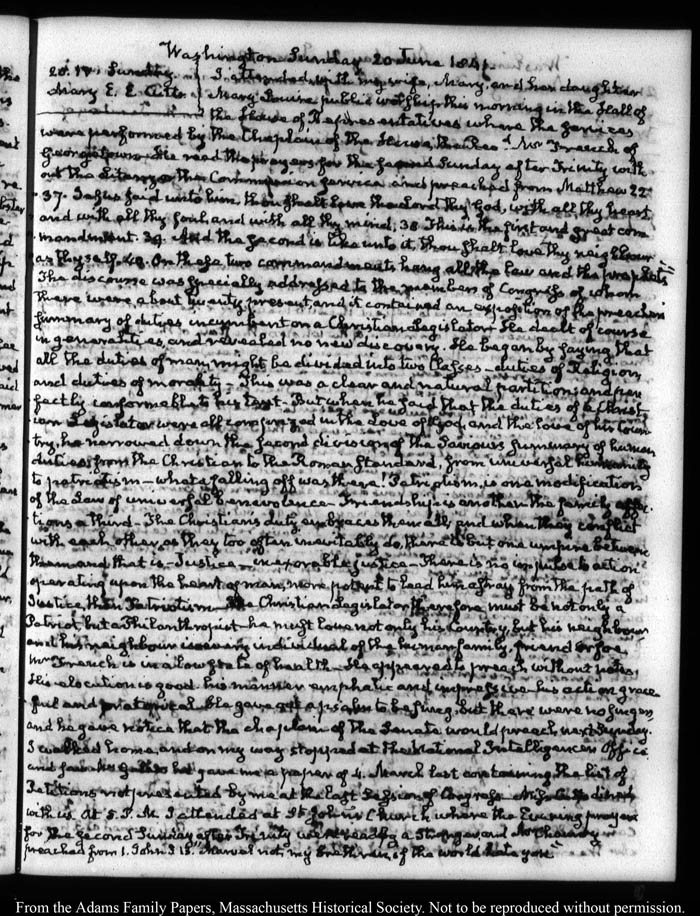 Washington Sunday 20 June 1841
20. IV: Sunday. I attended with my wife, Mary, and her daughter
Mary E. E. Cutts Mary Louisa public worship this morning in the Hall of
the House of Representatives where the services
were performed by the Chaplain of the House, the Revd. Mr French of
Georgetown. He read the prayers for the second Sunday after Trinity with
out the Litany or the Communion service and preached from Matthew 22
37. Jesus said unto him, thou shalt love the Lord thy God, with all thy heart
and with all thy soul and with all thy mind, 38 This is the first and great com
mandment. 39. And the second is like unto it, thou shalt love thy neighbour
as thyself. 40. On these two commandments hang all the law and the prophets"
The discourse was specially addressed to the members of Congress of whom
there were about twenty present, and it contained an exposition of the preachers
summary of duties incumbent on a Christian Legislator. He dealt of course
in generalities, and revealed no new discovery. He began by saying that
all the duties of man might be divided into two Classes — duties of Religion
and duties of morality — This was a clear and natural partition and per
fectly conformable to his text — But when he said that the duties of a Christ
ian Legislator were all comprized in the Love of God, and the love of his coun
try, he narrowed down the second division of the Saviour's summary of human
duties from the Christian to the Roman Standard, from universal humanity
to patriotism — what a falling off was there! Patriotism is one modification
of the Law of universal benevolence — Friendship is another the family affec
tions a third — The Christians duty embraces them all, and when they conflict
with each other, as they too often inevitably do, there is but one umpire between
them and that is — Justice — inexorable justice — There is no impulse to action
operating upon the heart of man, more potent to lead him astray from the path of
Justice, than Patriotism — The Christian Legislator therefore must be not only a
Patriot, but a Philanthropist — he must love not only his Country, but his neighbour
and his neighbour is every individual of the human family, friend or foe
Mr French is in a low state of health — He appeared to preach without notes,
His elocution is good his manner emphatic and impressive his action grace
ful and oratorical. He gave out a psalm to be sung, but there were no singers,
and he gave notice that the chaplain of the Senate would preach next Sunday.
I walked home, and on my way stopped at the National Intelligencer Office
and he gave me a paper of 4. March last containing the list of
Petitions not presented by me at the last Session of Congress Miss Cutts dined
with us. At 5. P.M. I attended at St. John's Church where the Evening prayer
for the second Sunday after Trinity were read by a Stranger and
preached from 1. John 3 13. "Marvel not, my brethren, if the world hate you"
From the Adams Family Papers, Massachusetts Historical Society. Not to be reproduced without permission.